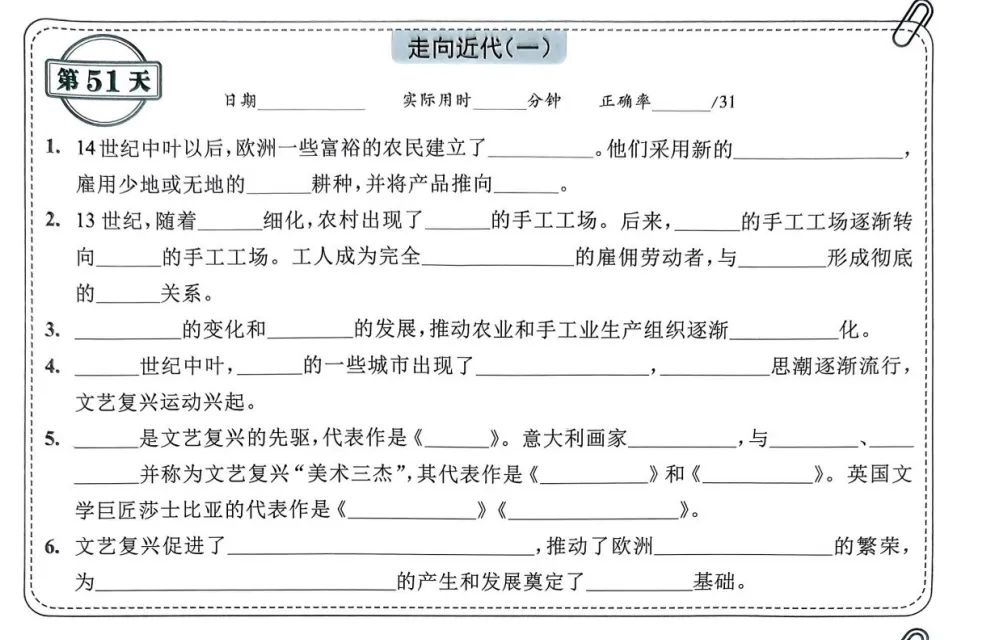 走向近代(一)
第51天
日期__________ 实际用时_____分钟 正确率_____/31
1. 14世纪中叶以后,欧洲一些富裕的农民建立了__________。他们采用新的________________,
雇用少地或无地的______耕种,并将产品推向______。
2. 13世纪,随着______细化,农村出现了______的手工工场。后来,______的手工工场逐渐转
向______的手工工场。工人成为完全______________的雇佣劳动者,与________形成彻底
的______关系。
3. __________的变化和________的发展,推动农业和手工业生产组织逐渐__________化。
4. ______世纪中叶,______的一些城市出现了________________,__________思潮逐渐流行,
文艺复兴运动兴起。
5. ______是文艺复兴的先驱,代表作是《______》。意大利画家__________,与________、____
______并称为文艺复兴“美术三杰”,其代表作是《__________》和《__________》。英国文
学巨匠莎士比亚的代表作是《____________》《________________》。
6. 文艺复兴促进了____________________________,推动了欧洲________________的繁荣,
为____________________________的产生和发展奠定了__________基础。